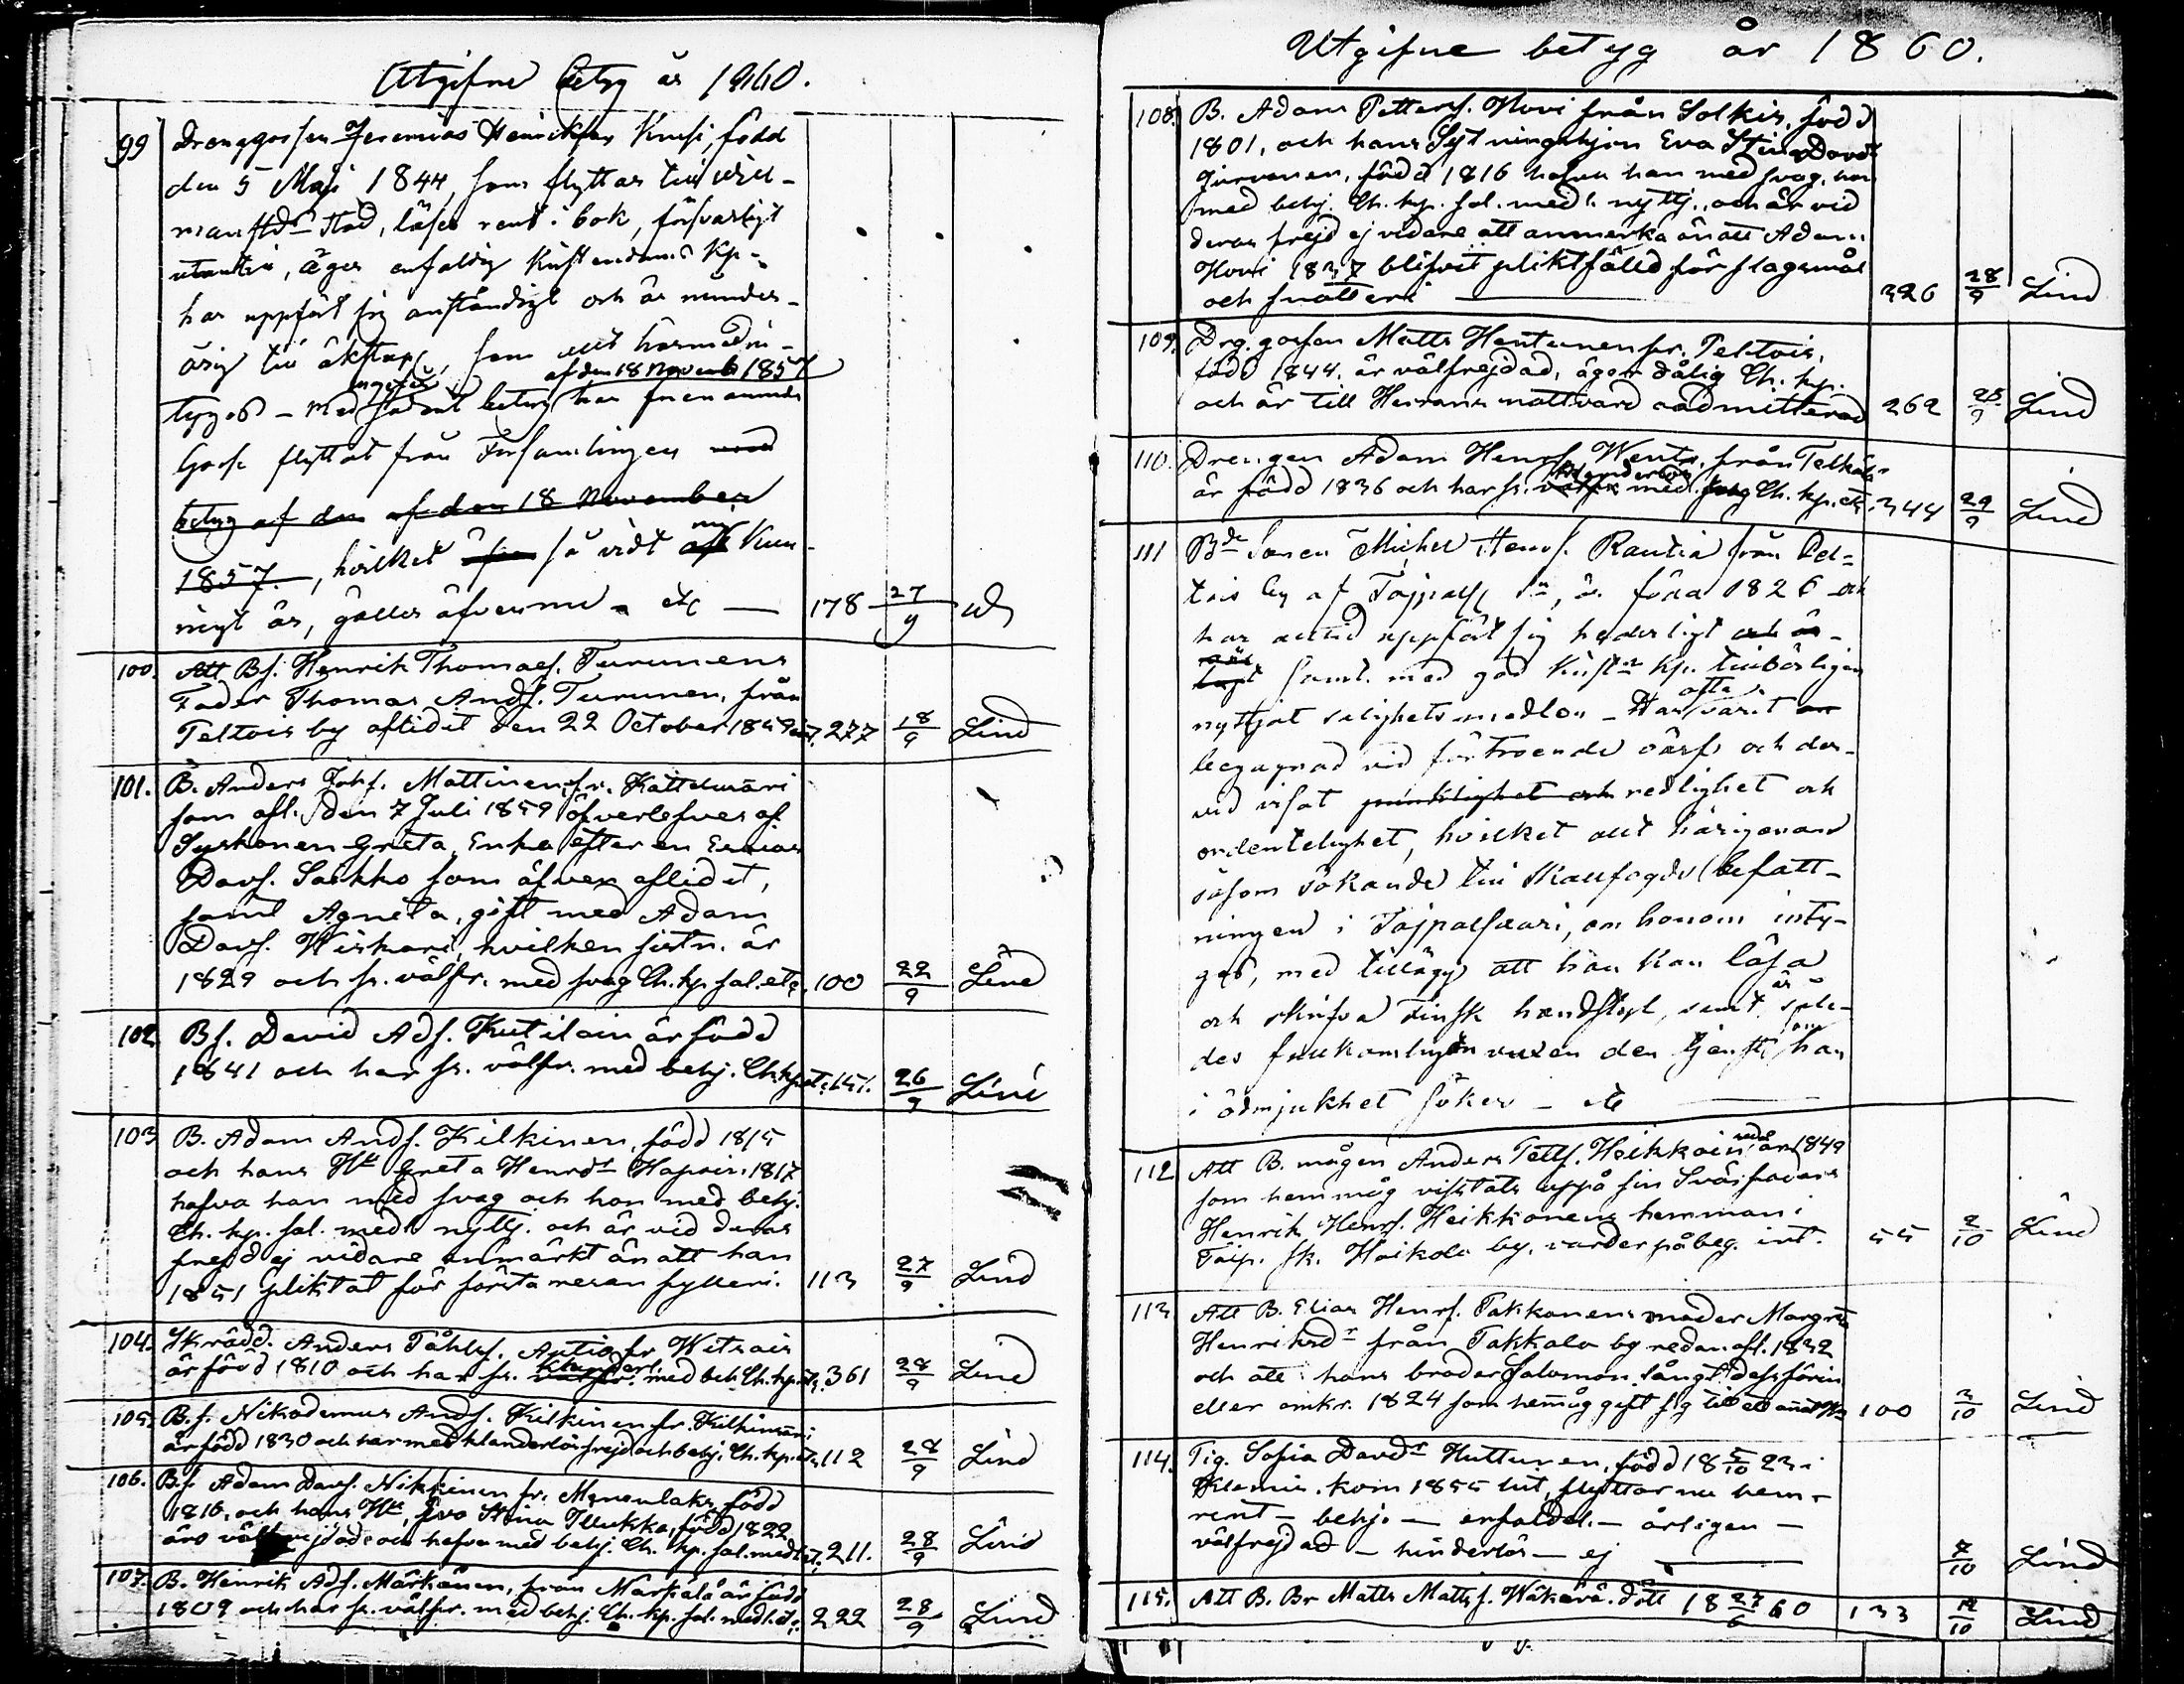 Utgifne betyg år 1860.
99 Drenggossen Jeremias Henriksson Kuusi, född
den 5 Maji 1844, som flyttar till Wil-
manstds stad, läser rent i bok, försvarligt
utantill, äger enfaldig Kristendoms Kp.
har uppfört sig anständigt och är minder-
årig till äktsap, som allt härmed in-
tygas - Med sådant betyg af den 18 Novemb 1857 har
Gosse flyttat från Församlingen med
betyg af den af den 18 November
1857, hvilket så vidt mig Kun-
nigt är, gäller äfven nu - etc — 178 27/9
100. Att Bs. Henrik Thomass. Turunens
Fader Thomas Ands. Turunen, från
Teltois by aflidit den 22 October 1859 int. 277 18/9 Lind
101. B. Anders Johs. Mattinen, fr. Kattelmäri
som afl. den 7 Juli 1859 öfverlefves af
Syskonen Greta, Enka efter en Esaias
Davs. Saikko som äfven aflidit,
samt Agneta, gift med Adam
Davs. Wiskari, hvilken sistn. är
1829 och fr. välfr. med svag Ch. kp. sal. etc. 100 22/9 Lind
102. Bs. David Ads. Kutilain är född
1841 och har fr. välfr. med behj. Ch. kp. etc. 151. 26/9 Lind
103 B. Adam Ands. Kilkinen, född 1815
och hans Hu Greta Henrdr Hapoin, 1817
hafva han med svag och hon med behj.
Ch. kp. sal. medl. nyttj. och är vid deras
frejd ej vidare anmärkt än att han
1851 pliktat för första resan fylleri. 113 27/9 Lind
104. Skrädd. Anders Påhls. Antia fr Witsais
är född 1810 och har fr. klanderl. välfr. med beh. Ch. kp. etc. 361 28/9 Lind
105. B.s. Nikodemus Ands. Kilkinen fr. Kilkinmäri
är född 1830 och har med klanderlös frejd och behj. Ch. kp. etc. 112 28/9 Lind
106. B.s. Adam Davs. Nikkinen fr. Monenlaks, född
1816, och hans Hu, Eva Stina Tllukka, född 1822
äro välfrejdade och hafva med behj. Ch. kp. sal. medl. et. 211. 28/9 Lind
107. B. Henrik Ads. Märkänen, från Märkälä är född
1809 och har fr. välfr. med behj. Ch. kp. sal. medl. etc. 222 28/9 Lind
Utgifne betyg år 1860.
108. B. Adam Petters. Hovi från Solkis, född
1801, och hans Sytningshjon Eva Stina Davdr
Jurvanen, född 1816 hafva han med svag, hon
med behj. Ch. kp. sal. medl. nyttj., och är vid
deras frejd ej vidare att anmerka än att Adam
Hovi 1837 blifvit pliktfälld för slagsmål
och snatteri — 326 28/9 Lind
109. Drg. gossen Matts Hentunen fr. Peltois,
född 1844, är välfrejdad, äger dålig Ch. kp.
och är till Herrans nattvard oadmitterad 262 28/9 Lind
110. Drengen Adam Henrs. Wents, från
är född 1836 och har fr. klanderlös med svag Ch. kp. etc. 344 29/9 Lind
111 Bde Sonen Michel Henrs. Rautia från Pel-
tois by af Taipals. Sn, är född 1826 och
har alltid uppfört sig hederligt och är
samt med god Krist.s Kp. tillbörligen
nyttjat salighetsmedlen - Har ofta varit
begagnad vid förtroende värf och der-
vid visat punktlighet och redlighet och
ordentelighet, hvilket allt härigenom
såsom sökande till Skallfogds befatt-
ningen i Tajpalsaari, om honom inty-
gas, med tillägg att han kan läsa
och skrifva Finsk handstyl, samt är såle-
des fullkomligen vuxen den tjenst som han
i ödmjukhet söker - etc
112 Att B. mågen Anders Petts. Heikkoin redan 1849
som hemmåg vistats uppå sin Svärfaders
Henrik Henrs. Heikkonens hemman i
Taip. sk. Haikola by, varder på beg. int. 55 2/10 Lind
113 Att B. Elias Henrs. Pakkanens moder Margrta
Henriksdr från Pakkala by redan afl. 1832
och att hans broder Salomon långt dessförin
eller omkr. 1824 som hemmåg gift sig till ett annat Hn 100 3/10 Lind
114. Pig. Sofia Davdr Huttunen, född 18 5/10 23 i
Klemis. kom 1855 hit, flyttar nu hem -
rent - behj. - enfaldel. - årligen -
välfrejdad - hinderlös - ej — 7/10 Lind
115. Att B. Br Matts Matts s. Wäkevä dött 18 27/6 60 133 12/10 Lind